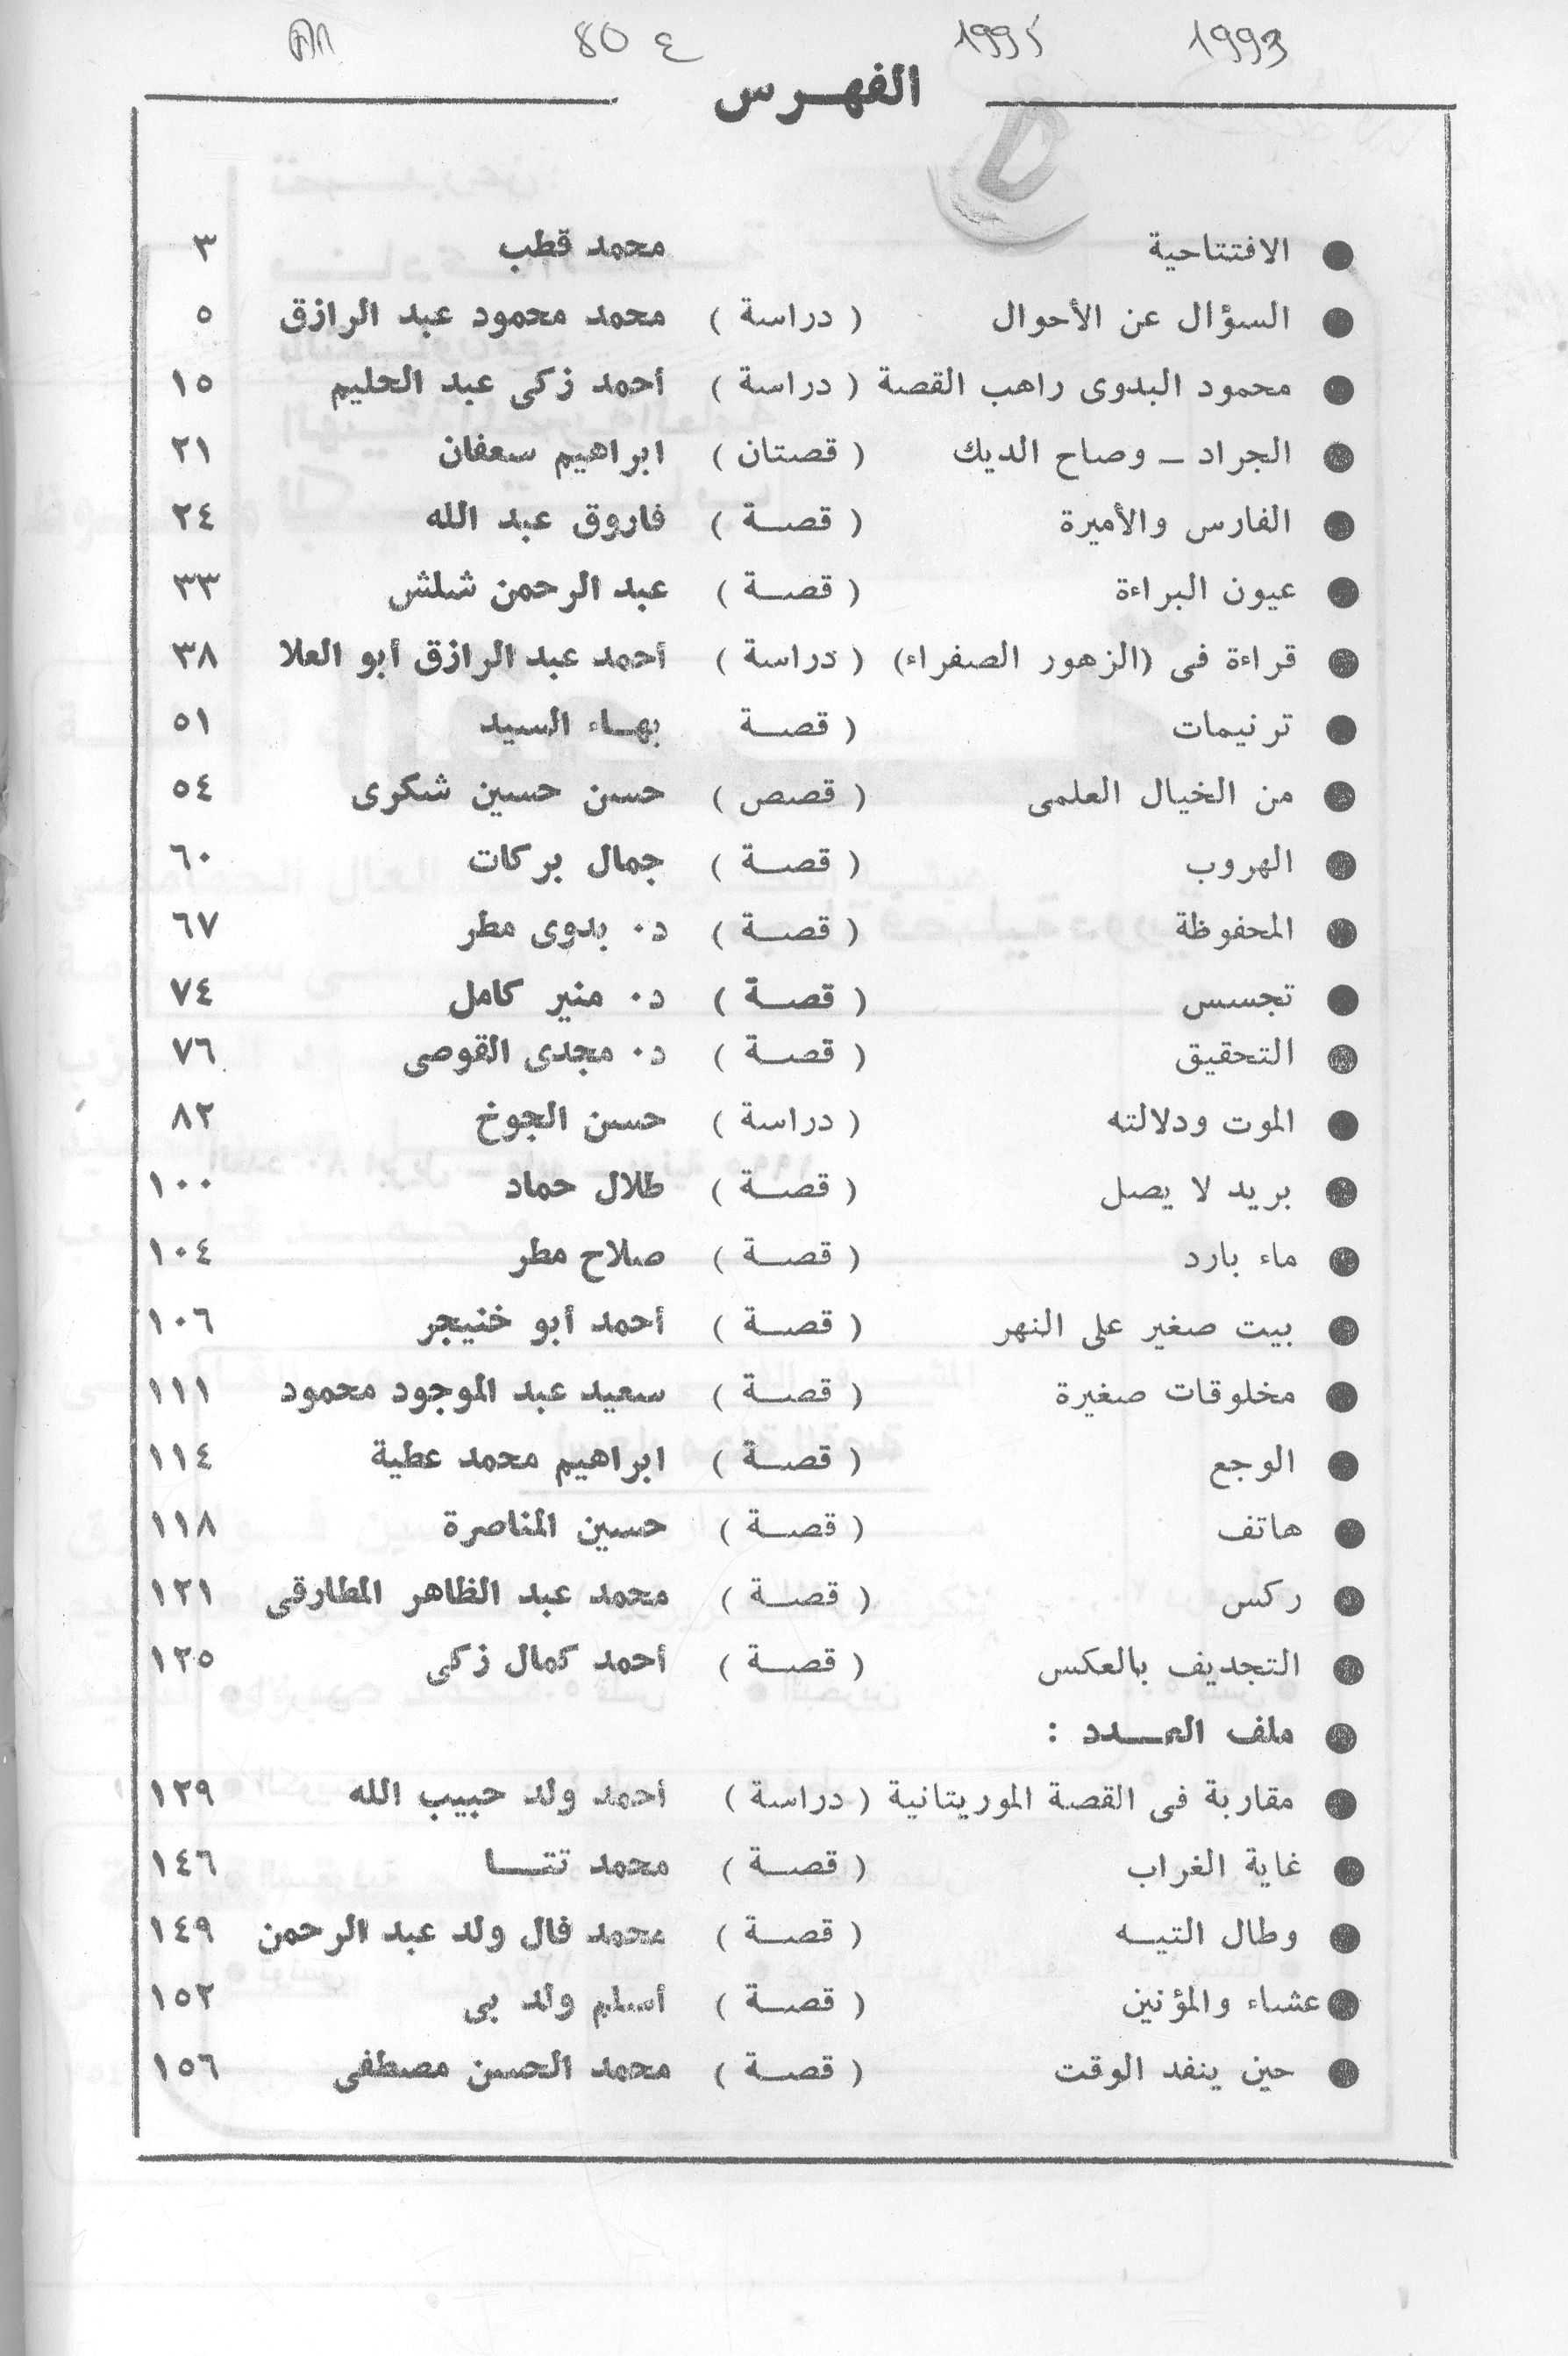 1993 1995 ع 80
الفهـرس
● الافتتاحية محمد قطب ٣
● السؤال عن الأحوال ( دراسة ) محمد محمود عبد الرازق ٥
● محمود البدوى راهب القصة ( دراسة ) أحمد زكى عبد الحليم ١٥
● الجراد ـ وصاح الديك ( قصتان ) ابراهيم سعفان ٢١
● الفارس والأميرة ( قصـة ) فاروق عبد الله ٢٤
● عيون البراءة ( قصـة ) عبد الرحمن شلش ٣٣
● قراءة فى (الزهور الصفراء) ( دراسة ) أحمد عبد الرازق أبو العلا ٣٨
● ترنيمات ( قصـة بهـاء السيد ٥١
● من الخيال العلمى ( قصص ) حسن حسين شكرى ٥٤
● الهروب ( قصـة ) جمال بركات ٦٠
● المحفوظة ( قصـة ) د٠ بدوى مطر ٦٧
● تجسس ( قصـة ) د٠ منير كامل ٧٤
● التحقيق ( قصـة ) د٠ مجدى القوصى ٧٦
● الموت ودلالته ( دراسة ) حسن الجوخ ٨٢
● بريد لا يصل ( قصـة ) طلال حماد ١٠٠
● ماء بارد ( قصـة ) صلاح مطر ١٠٤
● بيت صغير على النهر ( قصـة ) أحمد أبو خنيجر ١٠٦
● مخلوقات صغيرة ( قصـة ) سعيد عبد الموجود محمود ١١١
● الوجع ( قصـة ) ابراهيم محمد عطية ١١٤
● هاتف ( قصـة ) حسين المناصرة ١١٨
● ركس ( قصـة ) محمد عبد الظاهر المطارقى ١٢١
● التجديف بالعكس ( قصـة ) أحمد كمال زكى ١٢٥
● ملف العـدد :
● مقاربة فى القصة الموريتانية ( دراسة ) أحمد ولد حبيب الله ١٢٩
● غاية الغراب ( قصـة ) محمد تتـا ١٤٦
● وطال التيـه ( قصـة ) محمد فال ولد عبد الرحمن ١٤٩
● عشاء والمؤنين ( قصـة ) أسلم ولد بى ١٥٢
● حين ينفد الوقت ( قصـة ) محمد الحسن مصطفى ١٥٦